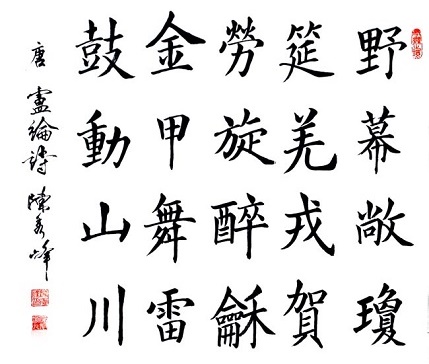 野幕敞瓊
筵羌戎賀
勞旋醉龢
金甲舞雷
鼓動山川
唐盧綸詩 陳秀峰